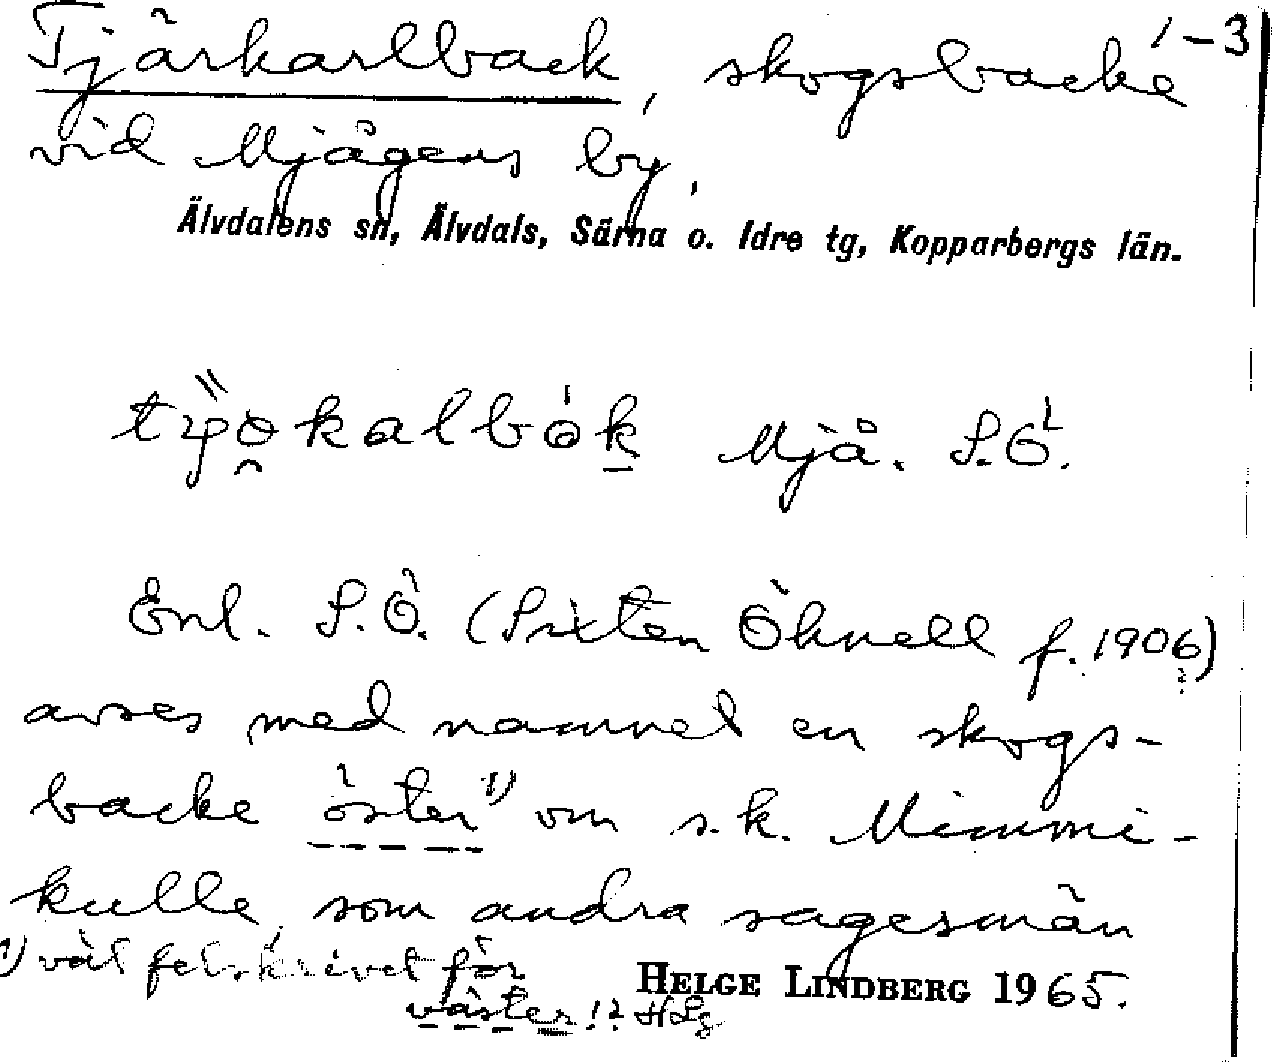 Tjärkarlback, skogsbacke 1-3
vid Mjågens by,
Älvdalens sn, Älvdals, Särna o. Idre tg, Kopparbergs län.
Mjå. S.Ö.
Enl. S.Ö. (Sixten Öhnell f. 1906)
avses med namnet en skogs-
backe öster 1) om s.k. Mimmi-
kulle, som andra sagesmän
1) väl felskrivet för
väster!? HLg
HELGE LINDBERG 1965.